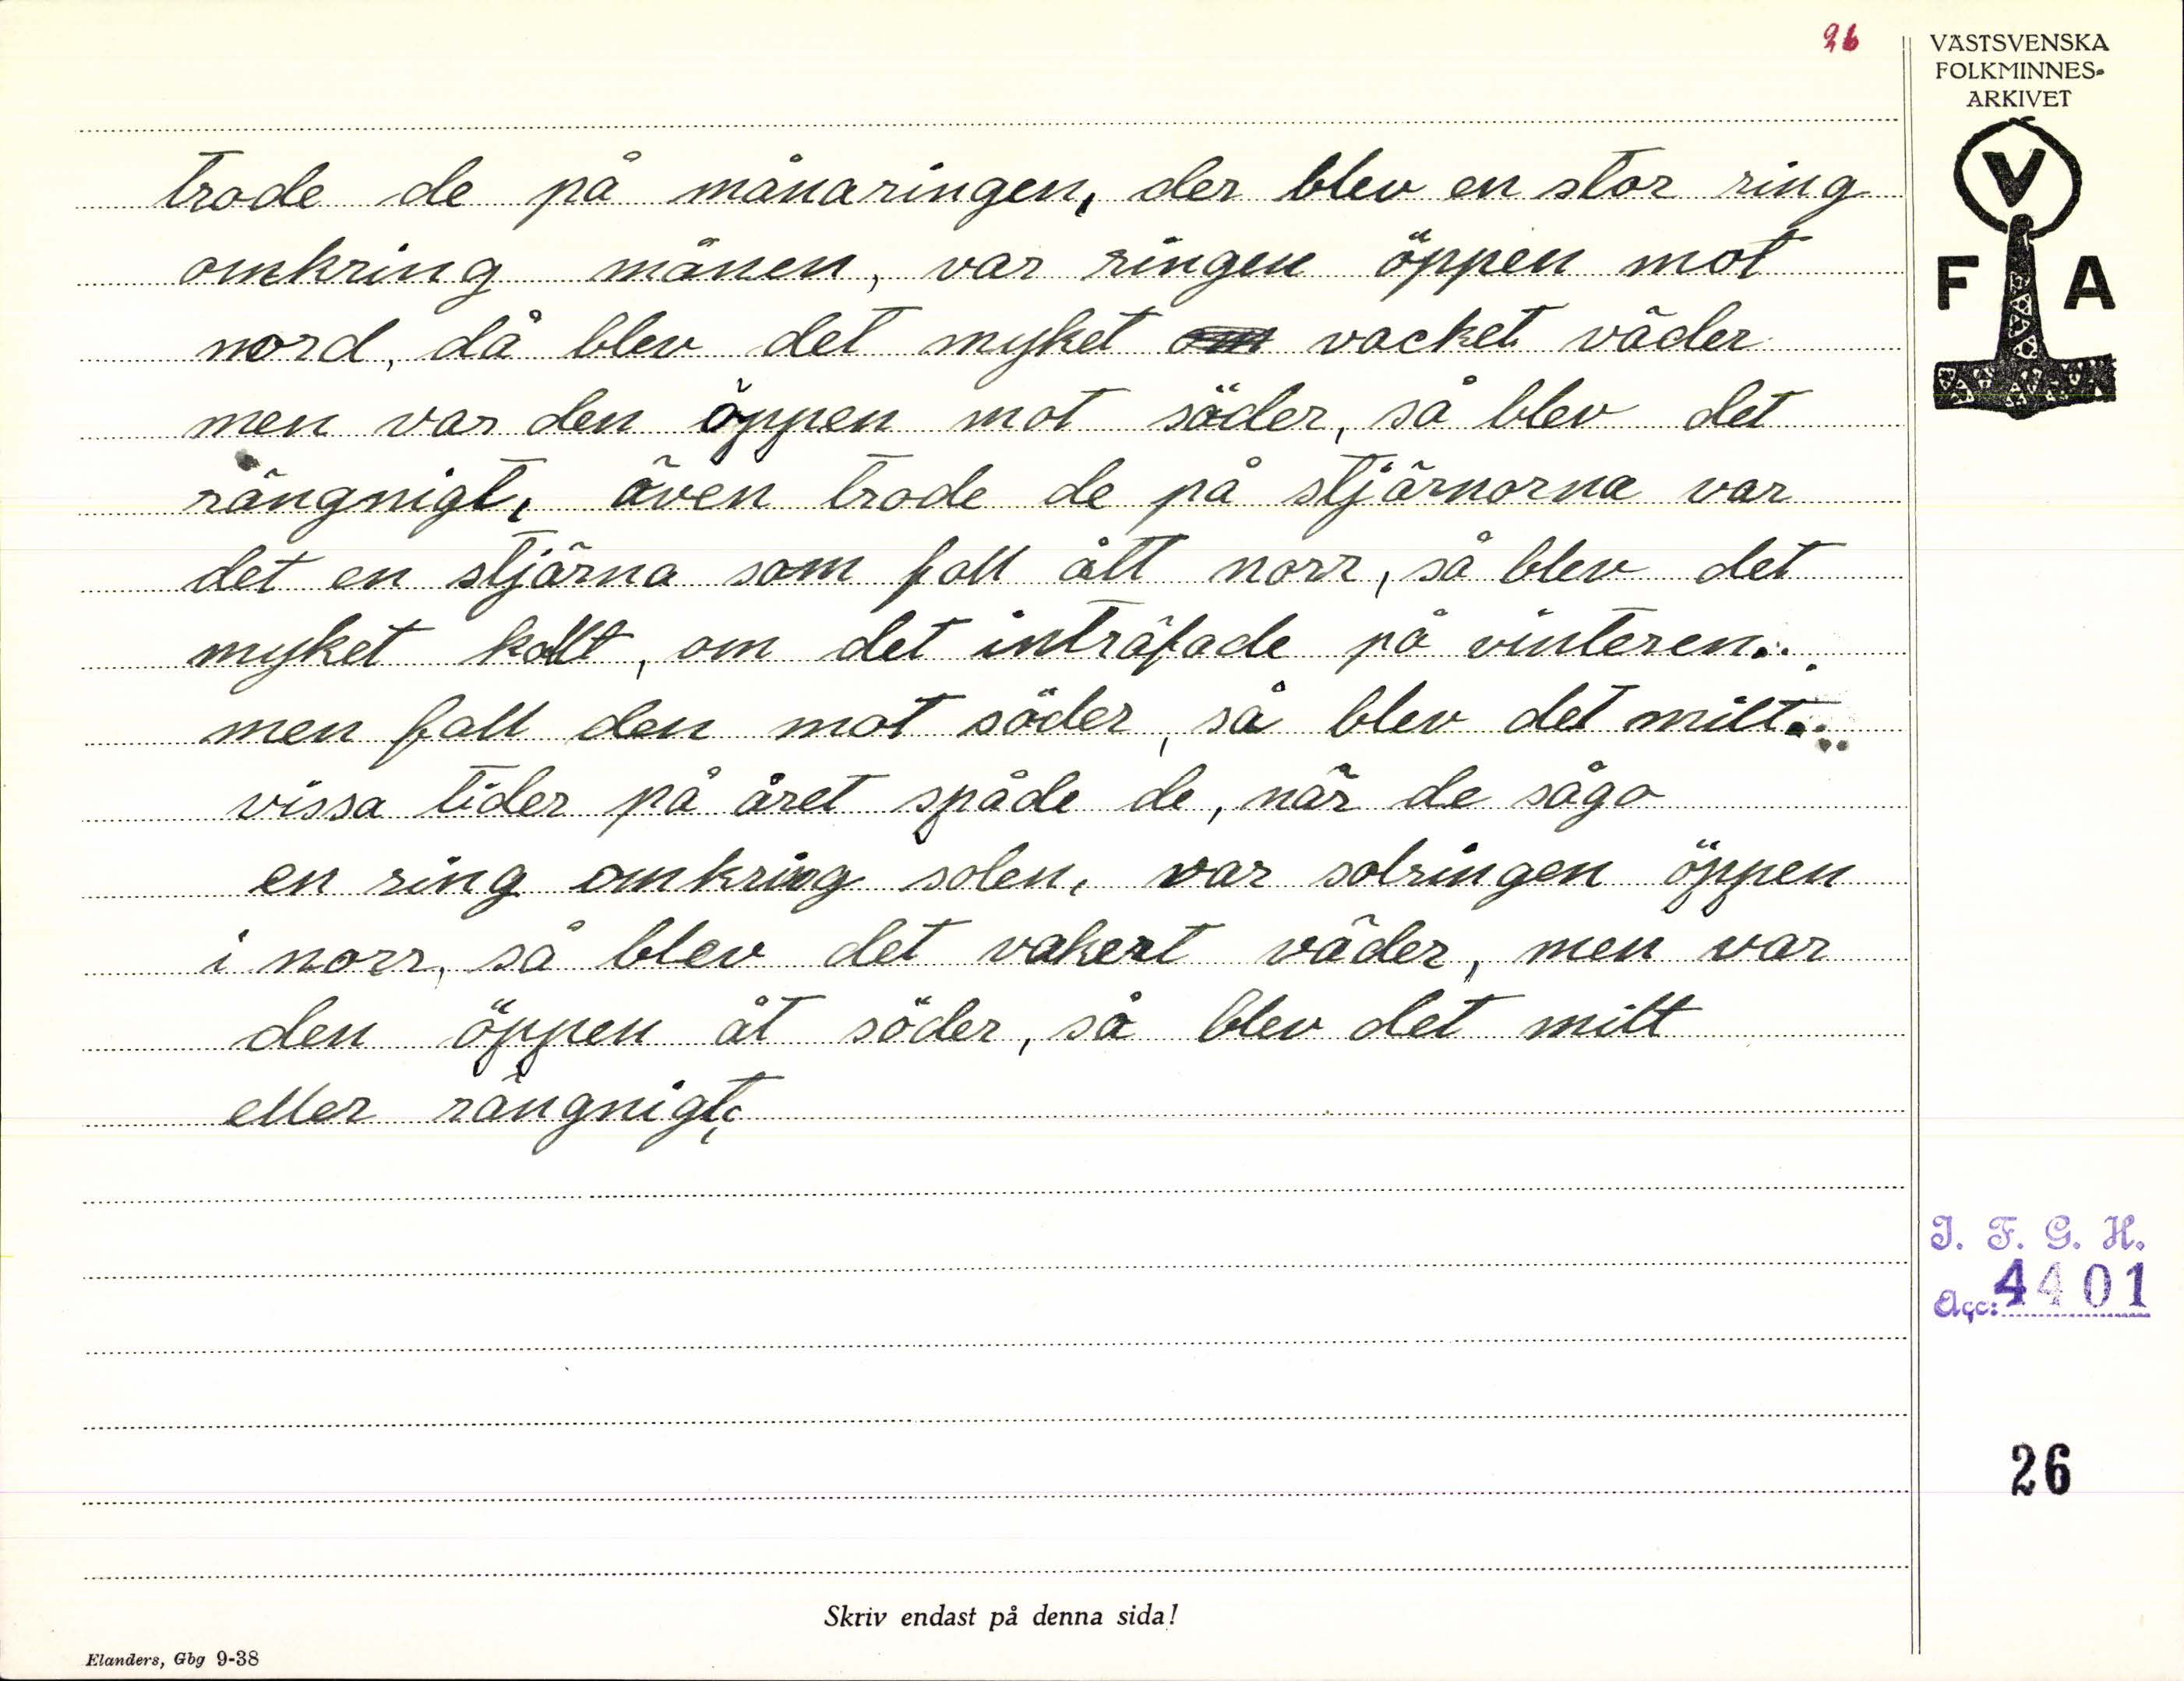 26
VÄSTSVENSKA
FOLKMINNES-
ARKIVET
V
F A
trode de på månaringen, der blev en stor ring
omkring månen, var ringen öppen mot
nord, då blev det myket vacket väder
men var den öppen mot söder, så blev det
rängnigt, även trode de på stjärnorna var
det en stjärna som foll ått norr, så blev det
myket kallt, om det inträfade på vinteren..
men fall den mot söder, så blev det milt..
vissa tider på året spåde de, når de sågo
en ring omkring solen, var solringen öppen
i norr, så blev det vakert väder, men var
den öppen åt söder, så blev det milt
eller rängnigt,
I. F. G. H.
Acc: 4401
26
Skriv endast på denna sida!
Elanders, Gbg 9-38